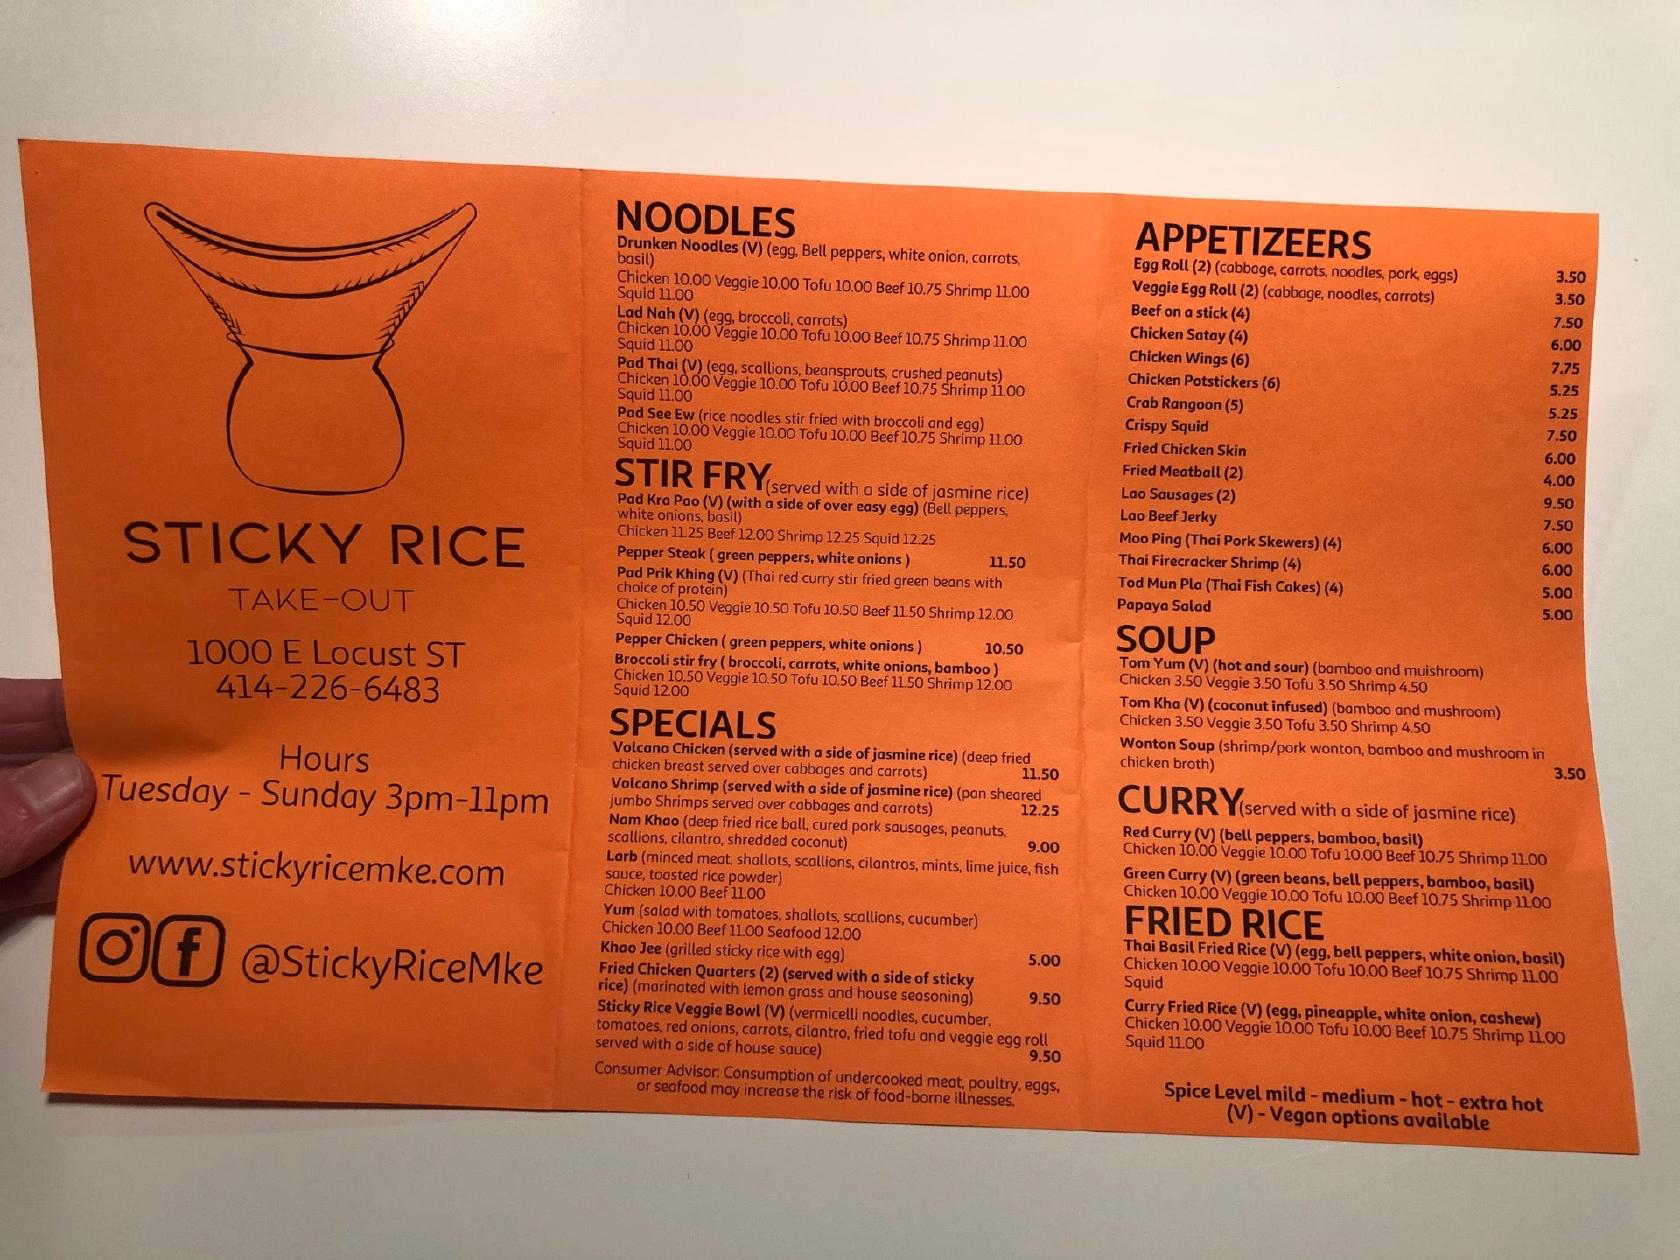 STICKY RICE
TAKE-OUT
1000 E Locust ST
414-226-6483
Hours
Tuesday - Sunday 3pm-11pm
www.stickyricemke.com
@StickyRiceMke
NOODLES
Drunken Noodles (V) (egg, Bell peppers, white onion, carrots,
basil)
Chicken 10.00 Veggie 10.00 Tofu 10.00 Beef 10.75 Shrimp 11.00
Squid 11.00
Lad Nah (V) (egg, broccoli, carrots)
Chicken 10.00 Veggie 10.00 Tofu 10.00 Beef 10.75 Shrimp 11.00
Squid 11.00
Pad Thai (V) (egg, scallions, beansprouts, crushed peanuts)
Chicken 10.00 Veggie 10.00 Tofu 10.00 Beef 10.75 Shrimp 11.00
Squid 11.00
Pad See Ew (rice noodles stir fried with broccoli and egg)
Chicken 10.00 Veggie 10.00 Tofu 10.00 Beef 10.75 Shrimp 11.00
Squid 11.00
STIR FRY(served with a side of jasmine rice)
Pad Kra Pao (V) (with a side of over easy egg) (Bell peppers,
white onions, basil)
Chicken 11.25 Beef 12.00 Shrimp 12.25 Squid 12.25
Pepper Steak ( green peppers, white onions ) 11.50
Pad Prik Khing (V) (Thai red curry stir fried green beans with
choice of protein)
Chicken 10.50 Veggie 10.50 Tofu 10.50 Beef 11.50 Shrimp 12.00
Squid 12.00
Pepper Chicken ( green peppers, white onions ) 10.50
Broccoli stir fry ( broccoli, carrots, white onions, bamboo )
Chicken 10.50 Veggie 10.50 Tofu 10.50 Beef 11.50 Shrimp 12.00
Squid 12.00
SPECIALS
Volcano Chicken (served with a side of jasmine rice) (deep fried
chicken breast served over cabbages and carrots) 11.50
Volcano Shrimp (served with a side of jasmine rice) (pan sheared
jumbo Shrimps served over cabbages and carrots) 12.25
Nam Khao (deep fried rice ball, cured pork sausages, peanuts,
scallions, cilantro, shredded coconut) 9.00
Larb (minced meat, shallots, scallions, cilantros, mints, lime juice, fish
sauce, toasted rice powder)
Chicken 10.00 Beef 11.00
Yum (salad with tomatoes, shallots, scallions, cucumber)
Chicken 10.00 Beef 11.00 Seafood 12.00
Khao Jee (grilled sticky rice with egg) 5.00
Fried Chicken Quarters (2) (served with a side of sticky
rice) (marinated with lemon grass and house seasoning) 9.50
Sticky Rice Veggie Bowl (V) (vermicelli noodles, cucumber,
tomatoes, red onions, carrots, cilantro, fried tofu and veggie egg roll
served with a side of house sauce) 9.50
Consumer Advisor: Consumption of undercooked meat, poultry, eggs,
or seafood may increase the risk of food-borne illnesses.
APPETIZEERS
Egg Roll (2) (cabbage, carrots, noodles, pork, eggs) 3.50
Veggie Egg Roll (2) (cabbage, noodles, carrots) 3.50
Beef on a stick (4) 7.50
Chicken Satay (4) 6.00
Chicken Wings (6) 7.75
Chicken Potstickers (6) 5.25
Crab Rangoon (5) 5.25
Crispy Squid 7.50
Fried Chicken Skin 6.00
Fried Meatball (2) 4.00
Lao Sausages (2) 9.50
Lao Beef Jerky 7.50
Moo Ping (Thai Pork Skewers) (4) 6.00
Thai Firecracker Shrimp (4) 6.00
Tod Mun Pla (Thai Fish Cakes) (4) 5.00
Papaya Salad 5.00
SOUP
Tom Yum (V) (hot and sour) (bamboo and muishroom)
Chicken 3.50 Veggie 3.50 Tofu 3.50 Shrimp 4.50
Tom Kha (V) (coconut infused) (bamboo and mushroom)
Chicken 3.50 Veggie 3.50 Tofu 3.50 Shrimp 4.50
Wonton Soup (shrimp/pork wonton, bamboo and mushroom in
chicken broth) 3.50
CURRY(served with a side of jasmine rice)
Red Curry (V) (bell peppers, bamboo, basil)
Chicken 10.00 Veggie 10.00 Tofu 10.00 Beef 10.75 Shrimp 11.00
Green Curry (V) (green beans, bell peppers, bamboo, basil)
Chicken 10.00 Veggie 10.00 Tofu 10.00 Beef 10.75 Shrimp 11.00
FRIED RICE
Thai Basil Fried Rice (V) (egg, bell peppers, white onion, basil)
Chicken 10.00 Veggie 10.00 Tofu 10.00 Beef 10.75 Shrimp 11.00
Squid
Curry Fried Rice (V) (egg, pineapple, white onion, cashew)
Chicken 10.00 Veggie 10.00 Tofu 10.00 Beef 10.75 Shrimp 11.00
Squid 11.00
Spice Level mild - medium - hot - extra hot
(V) - Vegan options available